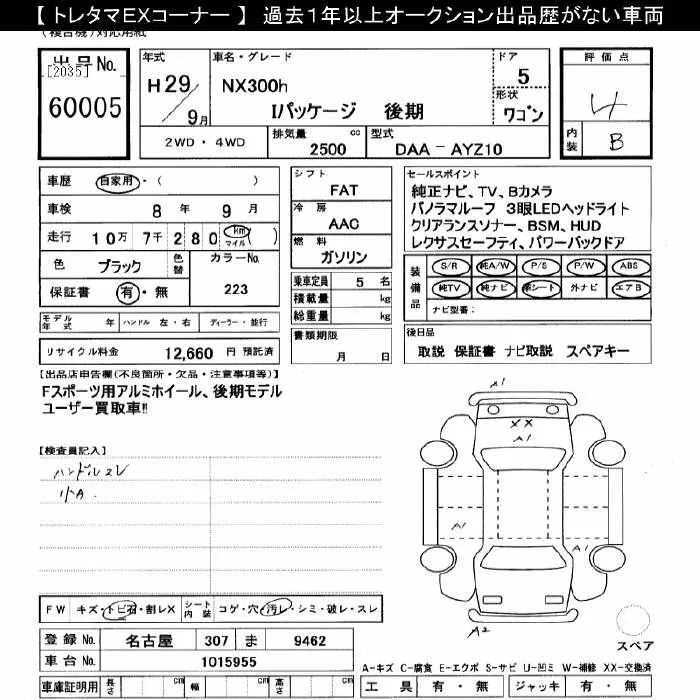 【 トレタマEXコーナー 】 過去1年以上オークション出品歴がない車両
(複合機)対応用紙
出品No. [2035]
60005
年式
H29/9月
車名・グレード
NX300h
Iパッケージ 後期
ドア
5
形状
ワゴン
評価点
4
内装
B
2WD ・ 4WD
排気量 cc
2500
型式
DAA - AYZ10
車歴 自家用・( )
車検 8 年 9 月
走行 10万 7千 280 (km マイル)
色 ブラック 色替 カラーNo.
保証書 有・無 223
モデル年式 年 ハンドル 左・右 ディーラー・並行
リサイクル料金 12,660 円 預託済
シフト
FAT
冷房
AAC
燃料
ガソリン
乗車定員 5 名
積載量 kg
総重量 kg
書類期限
月 日
セールスポイント
純正ナビ、TV、Bカメラ
パノラマルーフ 3眼LEDヘッドライト
クリアランスソナー、BSM、HUD
レクサスセーフティ、パワーバックドア
装備品
S/R 純A/W P/S P/W ABS
純TV 純ナビ 革シート 外ナビ エアB
ナビ型番:
後日品
取説 保証書 ナビ取説 スペアキー
【出品店申告欄(不良箇所・欠品・注意事項等)】
Fスポーツ用アルミホイール、後期モデル
ユーザー買取車!!
【検査員記入】
ハンドルスレ
小A.
A1
XX
A1
A1
A1
A2
スペア
FW キズ・トビ石・割レX シート内装 コゲ・穴・汚レ・シミ・破レ・スレ
登録 No. 名古屋 307 ま 9462
車台 No. 1015955
車庫証明用 長さ cm 幅 cm 高さ cm
A-キズ C-腐食 E-エクボ S-サビ U-凹ミ W-補修 XX-交換済
工具 有・無 ジャッキ 有・無